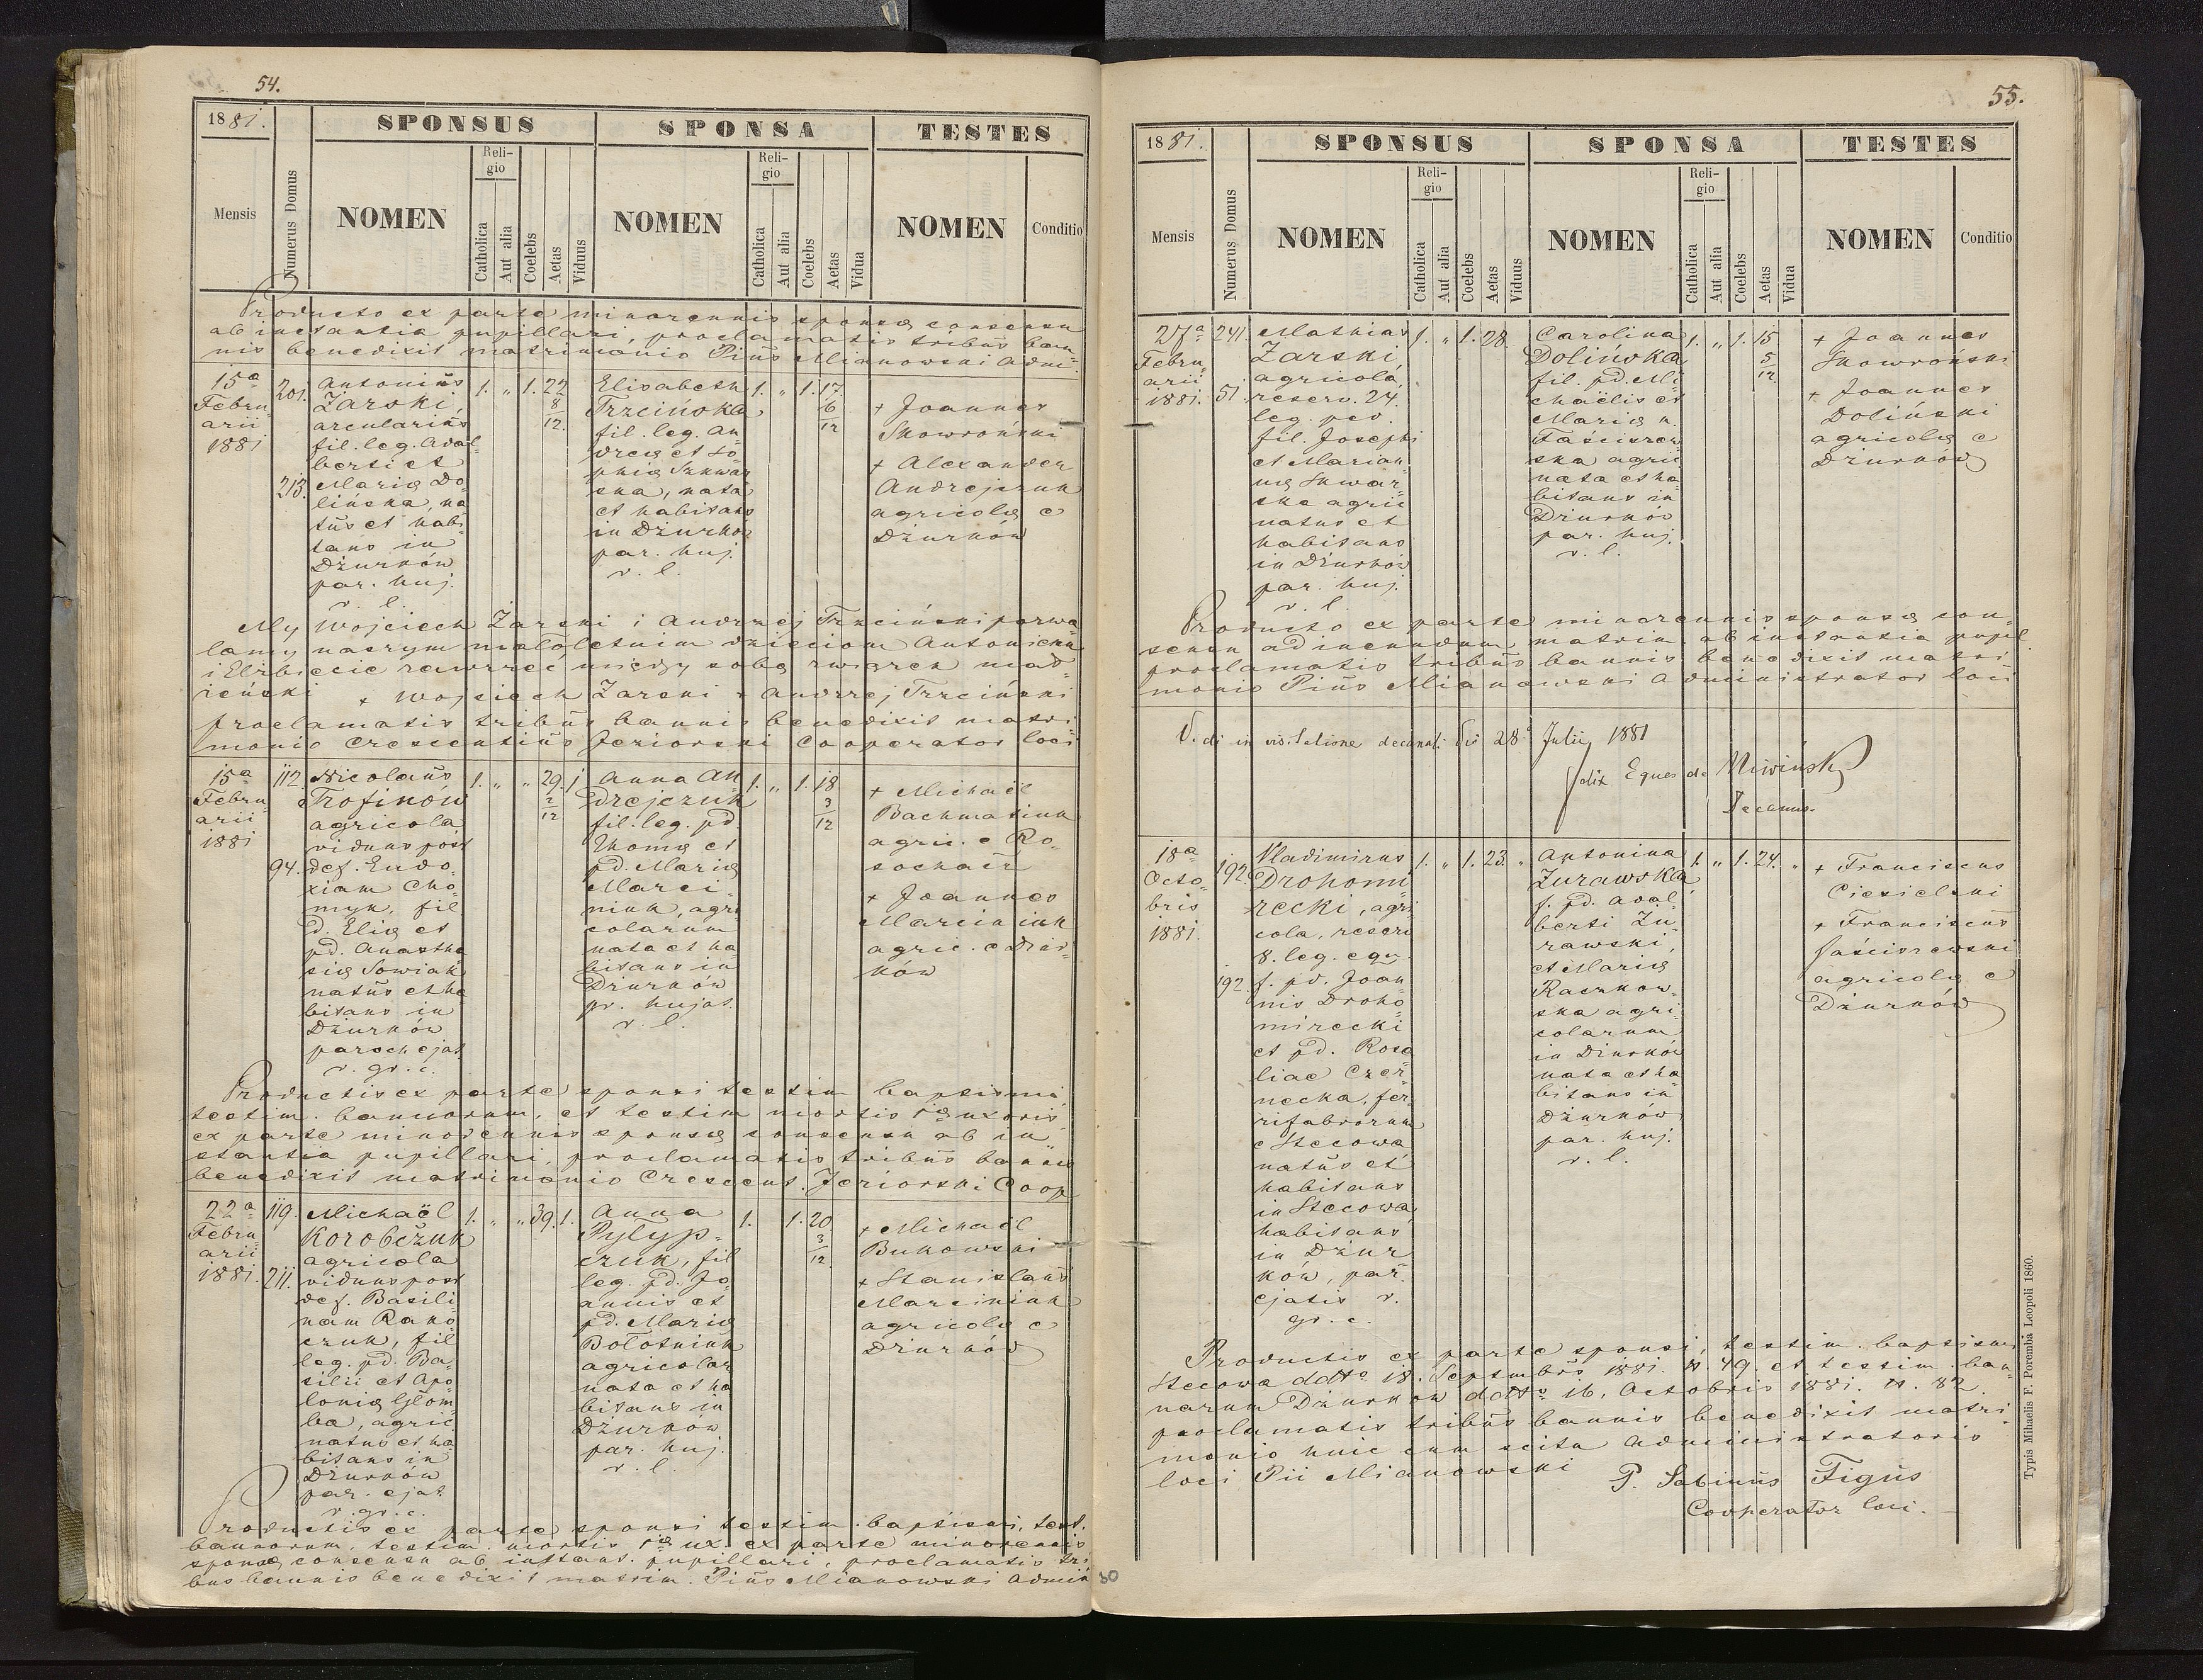 54.
1881.
SPONSUS
SPONSA
TESTES
Mensis
Numerus Domus
NOMEN
Religio
Catholica
Aut alia
Coelebs
Aetas
Viduus
NOMEN
Religio
Catholica
Aut alia
Coelebs
Aetas
Vidua
NOMEN
Conditio
Producto ex parte minorennis sponsę consensu
ab instantia pupillari, proclamatis tribus ban
nis benedixit matrimonio Pius Mianowski Adm.
15a
Febru
arii
1881
201.
213.
Antonius
Żarski,
arcularius
fil. leg. Adal
berti et
Marię Do
lińska, na
tus et habi
tans in
Dżurków
par. huj.
r. l.
1. „ 1. 22 8/12.
Elisabeth
Trzcińska,
fil. leg. An
dreę et So
phię Skwar
ska, nata
et habitans
in Dżurków
par. huj.
r. l.
1. „ 1. 17. 6/12
+ Joannes
Skowroński
+ Alexander
Andrejczuk
agricolę e
Dżurków
My Wojciech Żarski i Andrzej Trzciński pozwa
lamy naszym małoletnim dzieciom Antoniemu
i Elżbiecie zawrzeć między sobą związek mał
żeński + Wojciech Żarski + Andrzej Trzciński
proclamatis tribus bannis benedixit matri
monio Crescentius Jeziorski Cooperator loci
15a
Febru
arii
1881
112.
94.
Nicolaus
Trofinów
agricola
viduus post
def. Eudo
xiam Cho
myk, fil
d. Elię et
pd. Anastha
się Sowiak
natus et ha
bitans in
Dżurków
paroch ejat
r. gr. c.
1. „ „ 29. 1 2/12
Anna An
drejczuk
fil. leg. pd.
Thomę et
pd. Marię
Marci
niuk, agri
colarum
nata et ha
bitans in
Dżurków
pr. hujat.
r. l.
1. „ 1. 18 3/12
+ Michaël
Bachmatiuk
agric. e Ro
sochacz
+ Joannes
Marciniuk
agric. e Dżur
ków
Productis ex parte sponsi testim baptismi,
testim. bannorum, et testim mortis 1ę uxoris
ex parte minorennis sponsę consensu ab in
stantia pupillari, proclamatis tribus bannis
benedixit matrimonio Crescent. Jeziorski Coop
22a
Febru
arii
1881.
119.
211.
Michaël
Korobczuk
agricola
viduus post
def. Basili
nam Rako
czuk, fil
leg. pd. Ba
silii et Apo
lonię Głom
ba, agric
natus et ha
bitans in
Dżurków
par. ejat.
r. gr. c.
1. „ „ 39. 1.
Anna
Pylyp
czuk, fil
leg. pd. Jo
annis et
pd. Marię
Bołotniuk
agricolar
nata et ha
bitans in
Dżurków
par. huj.
r. l.
1. 1. 20 3/12
+ Michaël
Bukowski
+ Stanislaus
Marciniuk
agricolę e
Dżurków
Productis ex parte sponsi testim. baptismi, test.
bannorum, testim. mortis 1ę ux. ex parte minorennis
sponsę consensu ab instant. pupillari, proclamatis tri
bus bannis benedixit matrim. Pius Mianowski Admin
30
55.
1881.
SPONSUS
SPONSA
TESTES
Mensis
Numerus Domus
NOMEN
Religio
Catholica
Aut alia
Coelebs
Aetas
Viduus
NOMEN
Religio
Catholica
Aut alia
Coelebs
Aetas
Vidua
NOMEN
Conditio
27a
Febru
arii
1881.
241
51.
Mathias
Żarski,
agricola,
reserv. 24.
leg. ped.
fil. Josephi
et Marian
nę Skwar
ska agric
natus et
habitans
in Dżurków
par. huj.
r. l.
1. „ 1. 28.
Carolina
Dolińska
fil. pd. Mi
chaëlis et
Marię n.
Faściszew
ska agric
nata et ha
bitans in
Dżurków
par. huj.
r. l.
1. „ 1. 15 5/12
+ Joannes
Skowroński
+ Joannes
Doliński
agricolę e
Dżurków
Producto ex parte minorennis sponsę con
sensu ad ineundum matrim. ab instantia pupil.
proclamatis tribus bannis benedixit matri
monio Pius Mianowski Administrator loci
Vidi in visitatione decanali die 28a Julii 1881
Felix Eques de Niwiński
Decanus.
18a
Octo
bris
1881.
192.
192.
Vladimirus
Drohomi
recki, agri
cola, reserv
8. leg. equ
f. pd. Joan
nis Droho
mirecki
et pd. Rosa
liae Czer
necka, fer
rifabrorum
e Stecowa
natus et
habitans
in Stecowa
habitans
in Dżur
ków, par.
ejatis r.
gr. c.
1. „ 1. 23. „
Antonina
Żurawska,
f. pd. Adal
berti Żu
rawski,
et Marię
Raczkow
ska agri
colarum
in Dżurków
nata et ha
bitans in
Dżurków
par. huj.
r. l.
1. „ 1. 24. „
+ Franciscus
Ciesielski
+ Franciscus
Faściszewski
agricolę e
Dżurków
Productis ex parte sponsi, testim. baptismi
Stecowa ddto 18. Septembris 1881. N. 49. et testim. ban
narum Dżurków ddto 16. Octobris 1881. N. 82.
proclamatis tribus bannis benedixit matri
monio huic cum scitu Administratoris
loci Pii Mianowski
P. Sabinus Figus
Cooperator loci.
Typis Mihaelis F. Porembä Leopoli 1860.